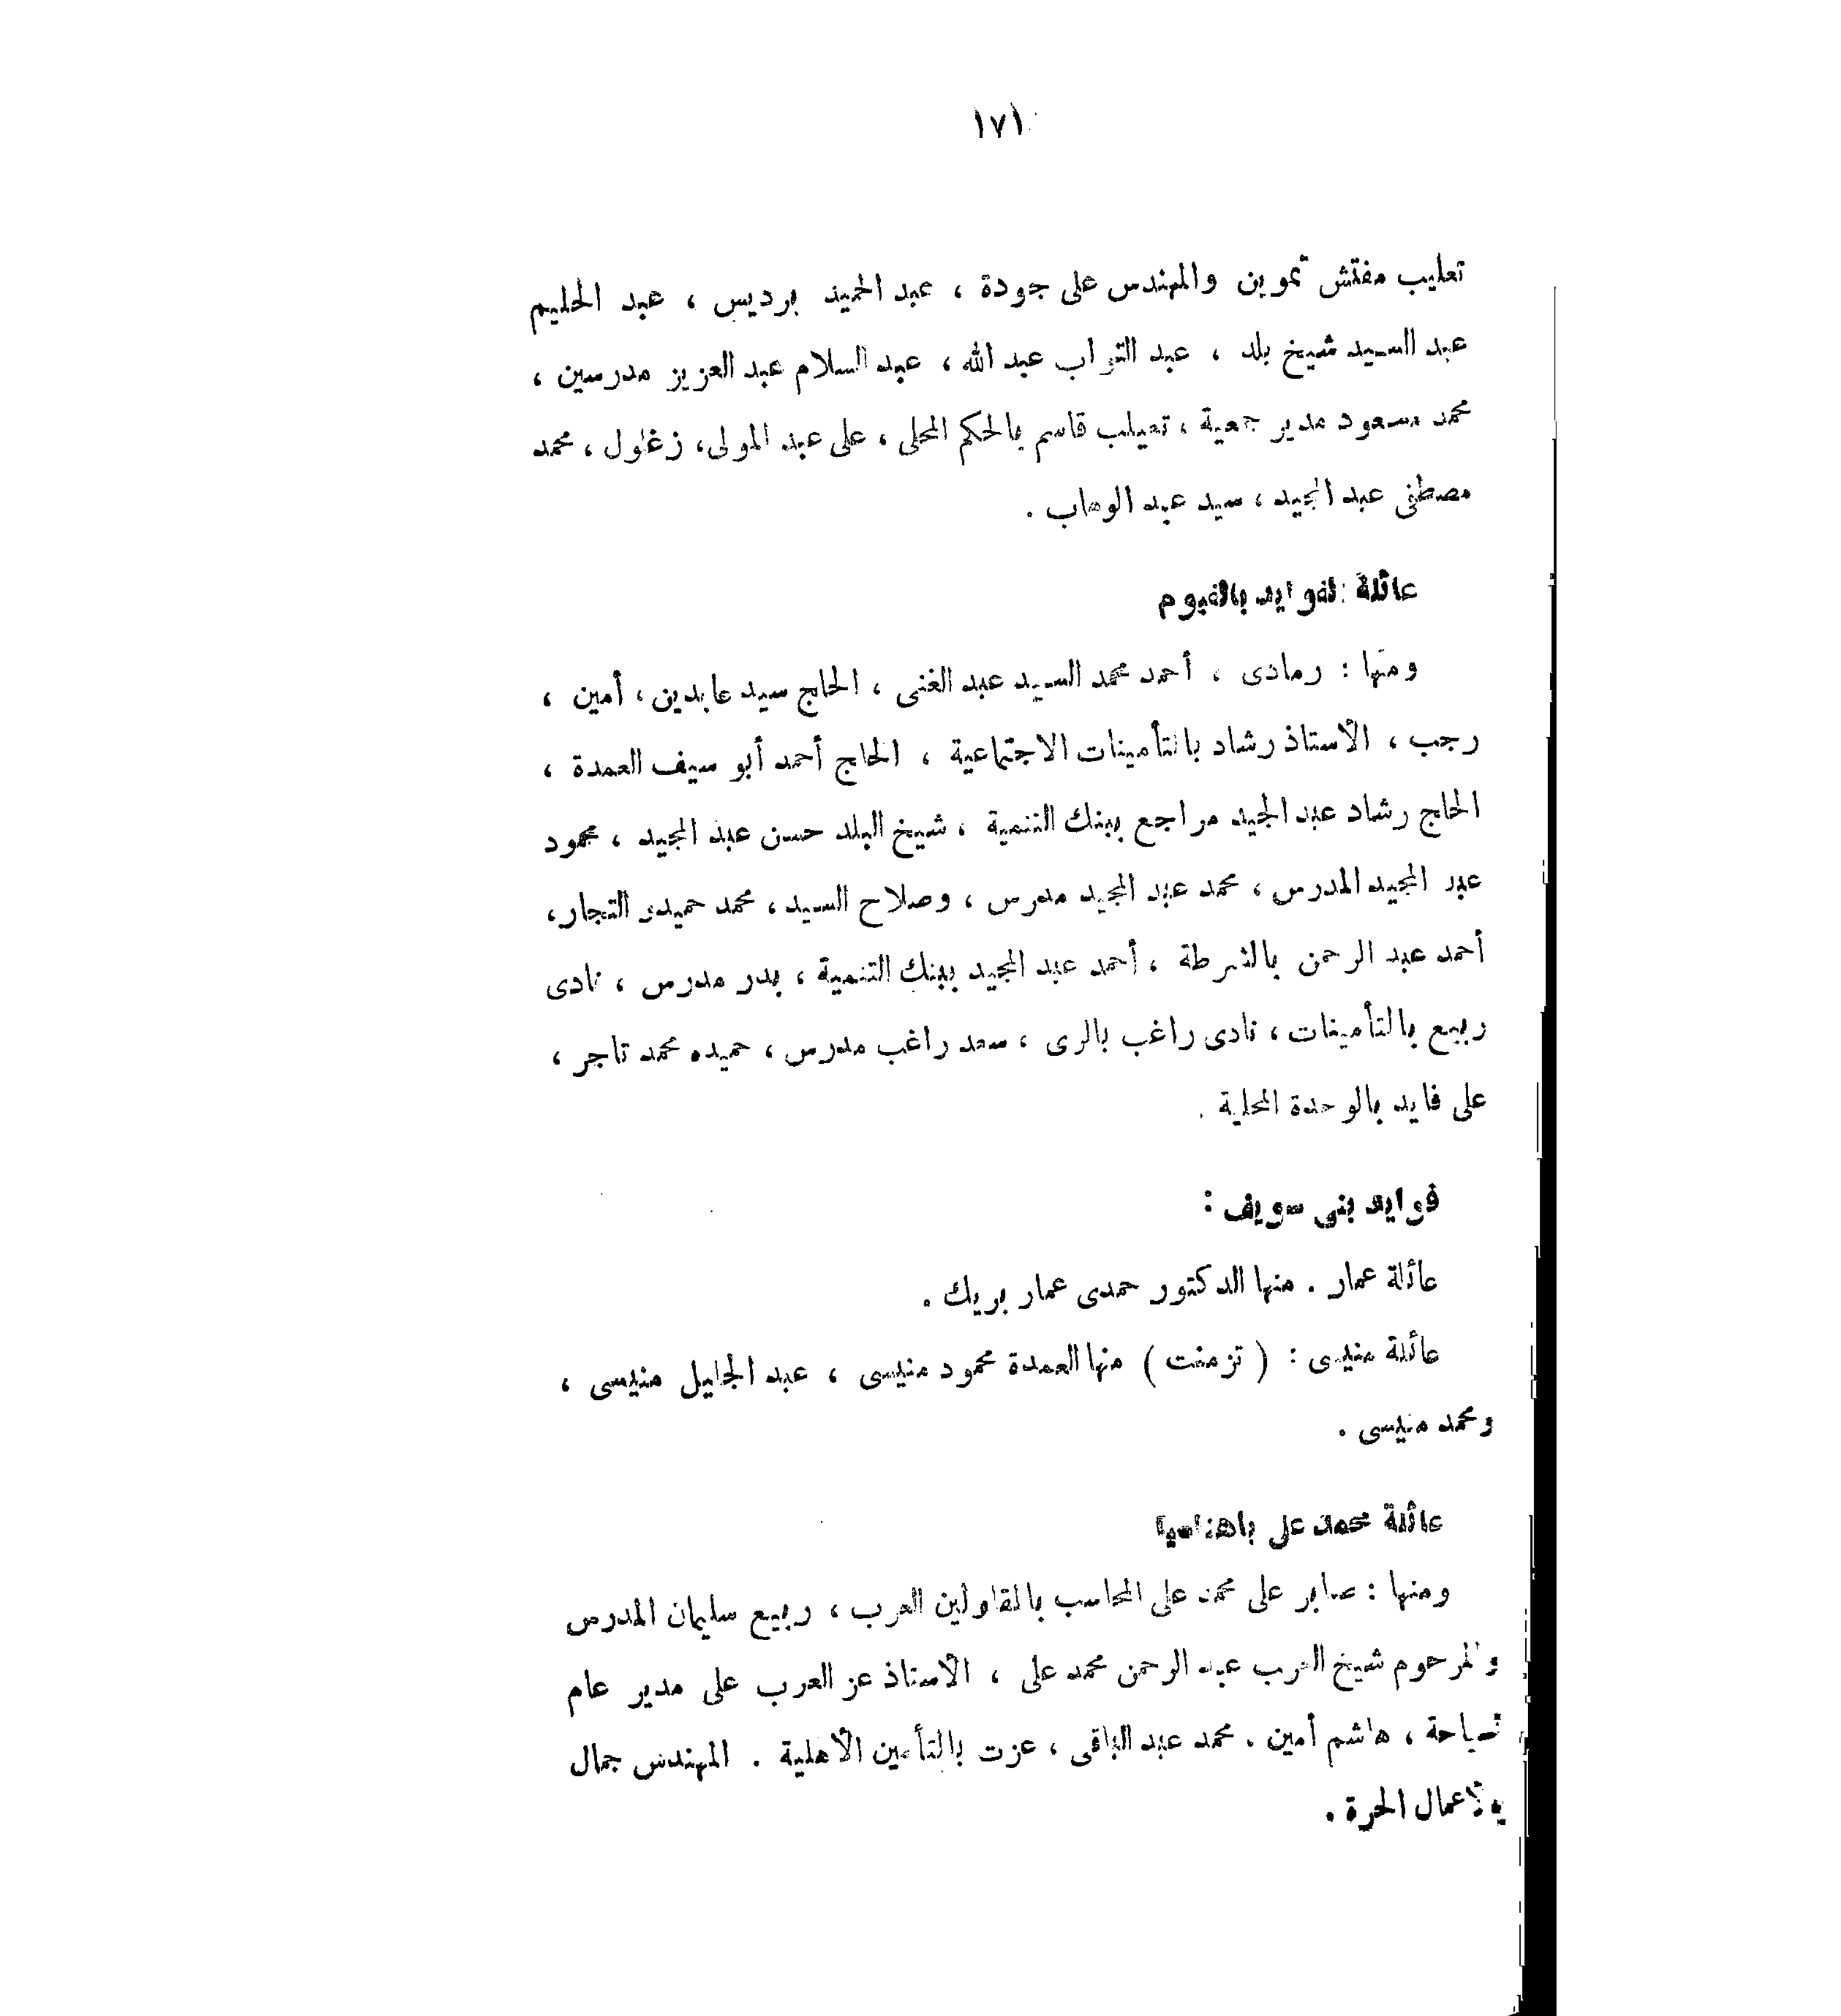 ١٧١
تعليب مفتش تموين والمهندس على جودة ، عبد الحميد برديس ، عبد الحليم
عبد السيد شيخ بلد ، عبد التواب عبد الله ، عبد السلام عبد العزيز مدرسين ،
محمد مسعود مدير جمعية ، تعيلب قاسم بالحكم المحلى ، على عبد المولى ، زغلول ، محمد
مصطفى عبد المجيد ، سيد عبد الوهاب .
عائلة الفوايد بالفيوم
ومنها : رمادى ، أحمد محمد السيد عبد الغنى ، الحاج سيد عابدين ، أمين ،
رجب ، الأستاذ رشاد بالتأمينات الاجتماعية ، الحاج أحمد أبو سيف العمدة ،
الحاج رشاد عبد المجيد مراجع ببنك التنمية ، شيخ البلد حسن عبد المجيد ، محمود
عبد المجيد المدرس ، محمد عبد المجيد مدرس ، وصلاح السيد ، محمد حميده التجار ،
أحمد عبد الرحمن بالشرطة ، أحمد عبد المجيد ببنك التنمية ، بدر مدرس ، نادى
ربيع بالتأمينات ، نادى راغب بالرى ، سعد راغب مدرس ، حميده محمد تاجر ،
على فايد بالوحدة المحلية .
فوايد بنى سويف :
عائلة عمار . منها الدكتور حمدى عمار بريك .
عائلة منيسى : ( تزمنت ) منها العمدة محمود منيسى ، عبد الجليل منيسى ،
ومحمد منيسى .
عائلة محمد على باهناسيا
ومنها : صابر على محمد على المحاسب بالمقاولين العرب ، ربيع سليمان المدرس
والمرحوم شيخ العرب عبد الرحمن محمد على ، الأستاذ عز العرب على مدير عام
سياحة ، هاشم أمين . محمد عبد الباقى ، عزت بالتأمين الأهلية . المهندس جمال
بالأعمال الحرة .